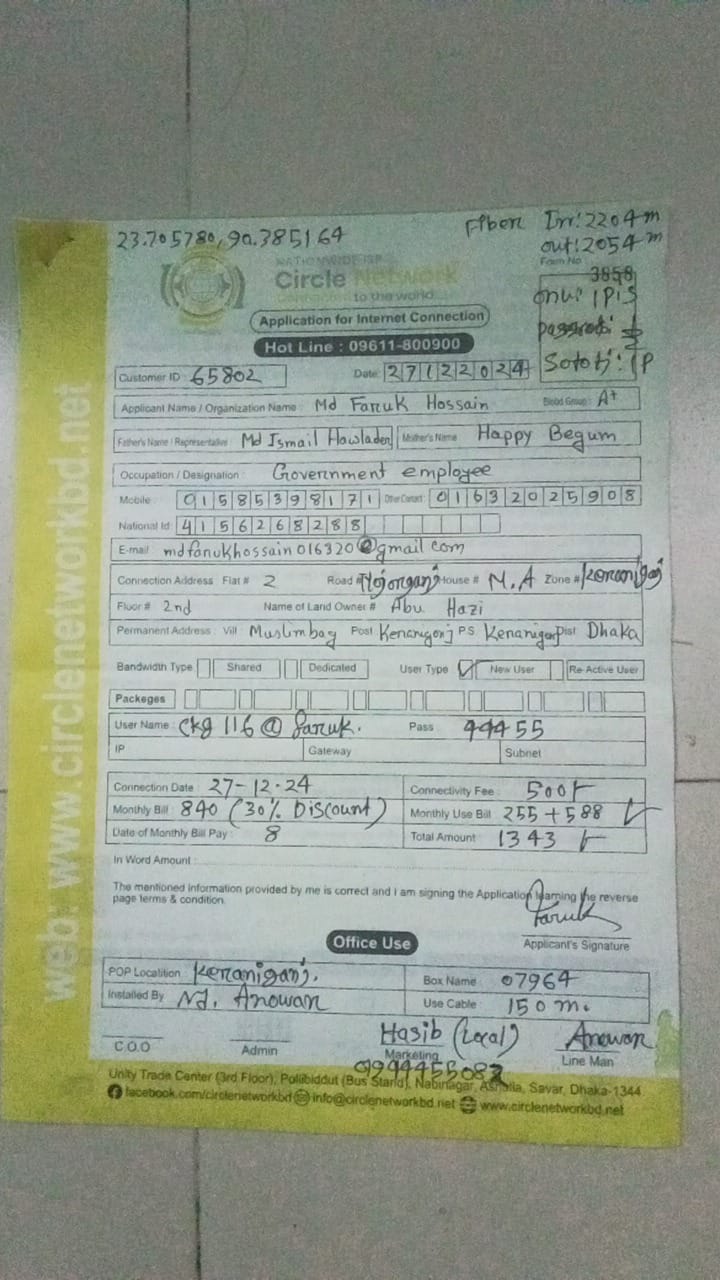 23.705780, 90.385164
Fiber In: 2204 m
out: 2054 m
NATIONWIDE ISP
Circle Network
Connected to the world
Form No
3858
onu: 1P:S
Application for Internet Connection
Hot Line : 09611-800900
Customer ID 65802 Date: 27122024
Applicant Name / Organization Name : Md Faruk Hossain Blood Group: A+
Father's Name / Representative Md Ismail Howlader Mother's Name Happy Begum
Occupation / Designation : Government employee
Mobile : 01585398171 Other Contact: 01632025908
National Id: 4156268288
E-mail mdfarukhossain016320@gmail.com
Connection Address Flat # 2 Road # House # N.A Zone # Keraniganj
Floor # 2nd Name of Land Owner # Abu Hazi
Permanent Address : Vill Muslimbag Post Keranigonj PS Keranigonj Dist Dhaka
Bandwidth Type Shared Dedicated User Type New User Re-Active User
Packeges
User Name : ckg 116 @ faruk. Pass : 99455
IP Gateway Subnet
Connection Date : 27-12-24 Connectivity Fee : 500/-
Monthly Bill : 840 (30% Discount) Monthly Use Bill 255 + 588
Date of Monthly Bill Pay : 8 Total Amount : 1343
In Word Amount :
The mentioned information provided by me is correct and I am signing the Application learning the reverse
page terms & condition.
Faruk
Applicant's Signature
Office Use
POP Localition Keraniganj. Box Name 07964
Installed By Md. Anowar Use Cable : 150 m.
Hasib (Local) Anowar
C.O.O Admin Marketing Line Man
Unity Trade Center (3rd Floor), Pollibiddut (Bus Stand), Nabinagar, Ashulia, Savar, Dhaka-1344
facebook.com/circlenetworkbd info@circlenetworkbd.net www.circlenetworkbd.net
web: www.circlenetworkbd.net